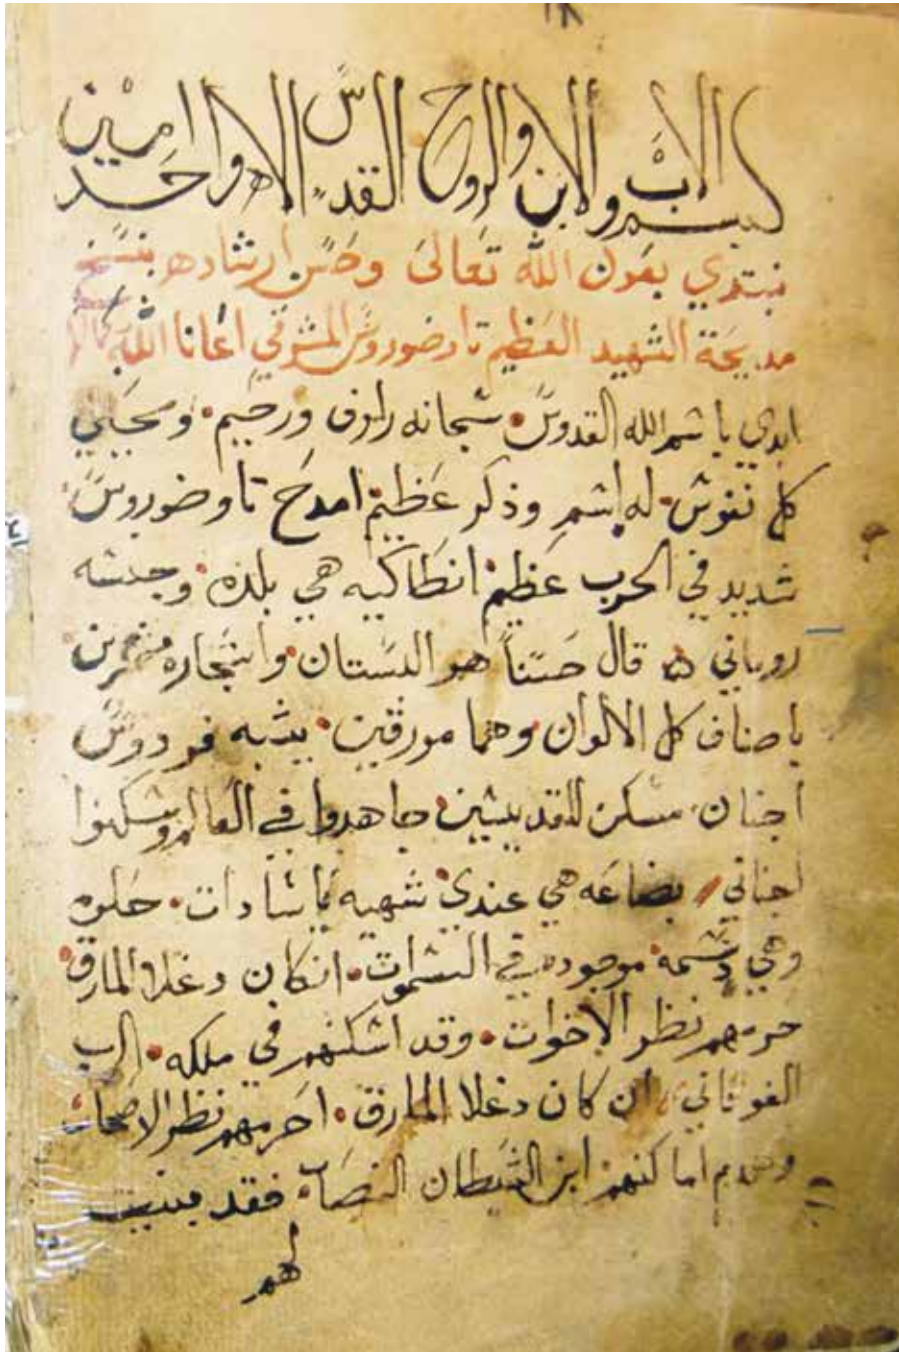 ١٨
بسم الاب والابن والروح القدس الاه واحد امين
نبتدي بعون الله تعالى وحسن ارشاده بنسخ
مديحة الشهيد العظيم تاوضوروس المشرقي اعانا الله
ابدي باسم الله القدوس • سبحانه راوف ورحيم • ومحيي
كل نفوس • له اسم وذكر عظيم • امدح تاوضوروس
شديد في الحرب عظيم • انطاكيه هي بلده • وجنسه
روماني ۞ قال حسناً هو البستان • واشجاره مثمرين
باصناف كل الالوان وهما مورقين • يشبه فردوس
اجنان • مسكن للقديسين • جاهدوا في العالم وسكنوا
اجناني / بضاعه هي عندي شهيه يا سادات • حلوه
وهي دسمه • موجوده في السموات • انكان دغلا المارق •
حرمهم نظر الاخوات • وقد اسكنهم في ملكه • الرب
الفوقاني / ان كان دغلا المارق • احرمهم نظر الاصحاب
وهدم اماكنهم ابن الشيطان النصاب • فقد بنيت
لهم